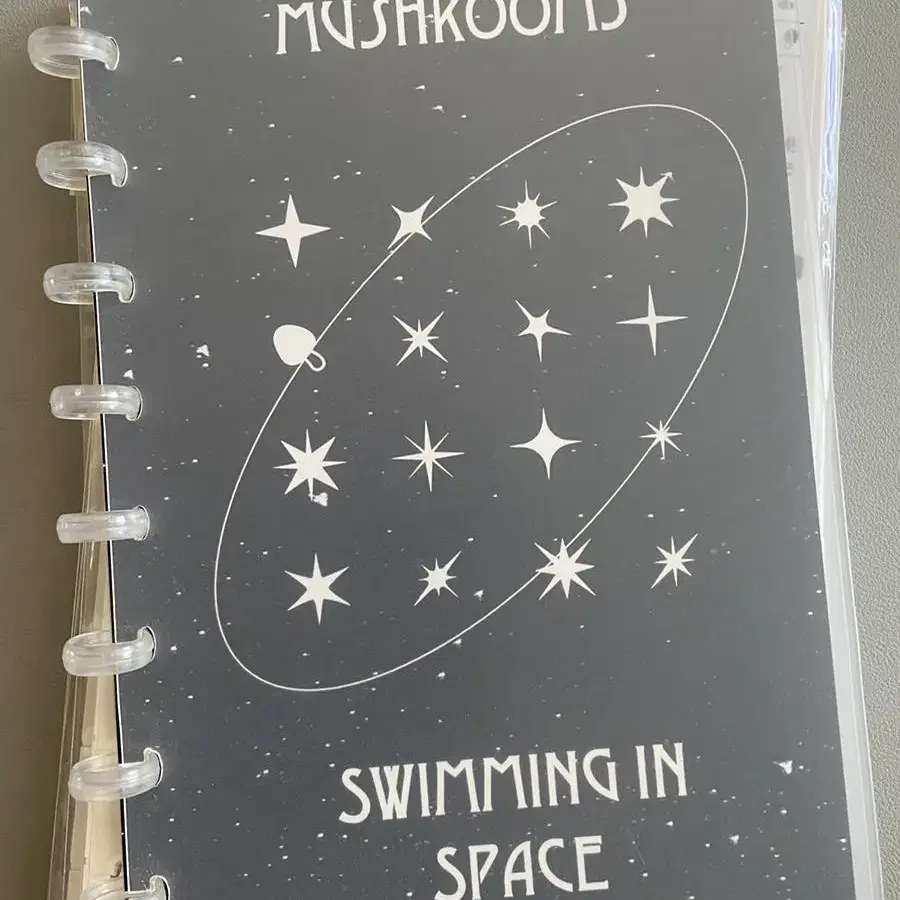 MUSHROOMS
SWIMMING IN
SPACE